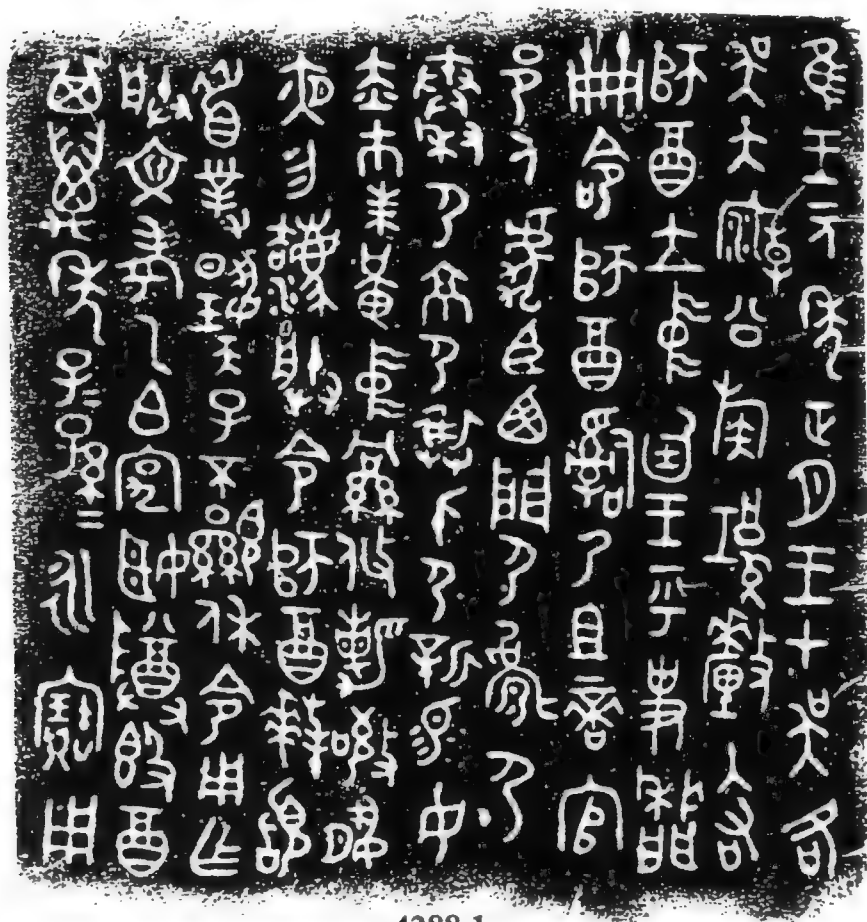 隹王元年正月王才吳各
吳大廟公族𤲞釐入右
師酉立中廷王乎史牆
冊命師酉𤔲乃且啻官
邑人虎臣西門尸𩁹尸
秦尸京尸𢍰身尸新易女
赤巿朱黃中𦅫攸勒敬夙
夜勿灋朕令師酉拜𩒨
首對揚天子不顯休令用乍
朕文考乙白宄姬尊簋酉
其萬年子=孫=永寶用